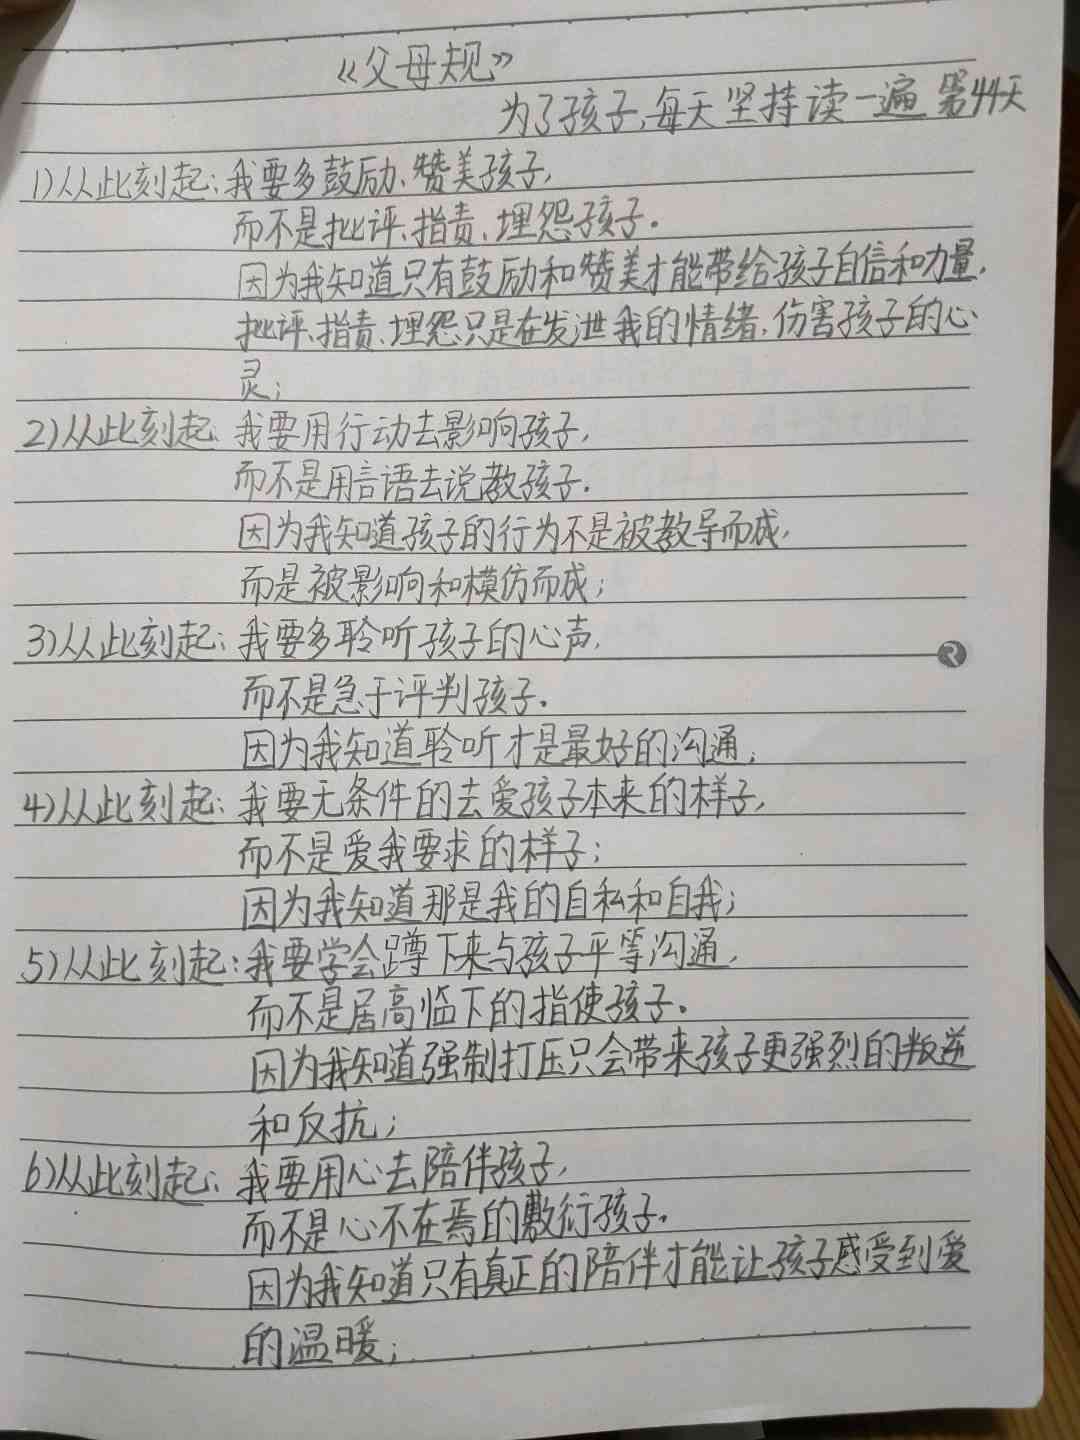 《父母规》
为了孩子,每天坚持读一遍 第44天
1)从此刻起:我要多鼓励、赞美孩子,
而不是批评、指责、埋怨孩子.
因为我知道只有鼓励和赞美才能带给孩子自信和力量,
批评、指责、埋怨只是在发泄我的情绪,伤害孩子的心
灵;
2)从此刻起:我要用行动去影响孩子,
而不是用言语去说教孩子.
因为我知道孩子的行为不是被教导而成,
而是被影响和模仿而成;
3)从此刻起:我要多聆听孩子的心声,
而不是急于评判孩子.
因为我知道聆听才是最好的沟通;
4)从此刻起:我要无条件的去爱孩子本来的样子,
而不是爱我要求的样子;
因为我知道那是我的自私和自我;
5)从此刻起:我要学会蹲下来与孩子平等沟通,
而不是居高临下的指使孩子.
因为我知道强制打压只会带来孩子更强烈的叛逆
和反抗;
6)从此刻起:我要用心去陪伴孩子,
而不是心不在焉的敷衍孩子.
因为我知道只有真正的陪伴才能让孩子感受到爱
的温暖;